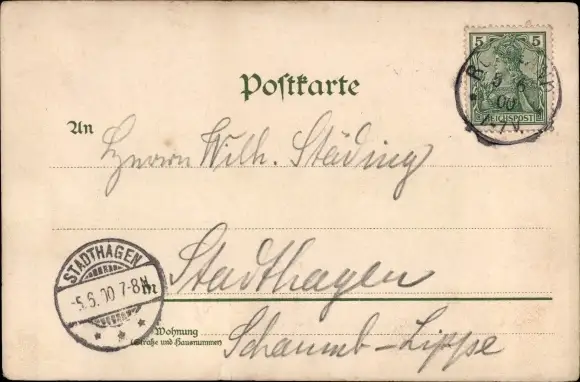 5 5
REICHSPOST
5 6
00
Postkarte
An
Herrn Wilh. Städing
STADTHAGEN
-5.6.00 7-8N
* * *
in
Stadthagen
Wohnung
(Straße und Hausnummer)
Schaumb-Lippe